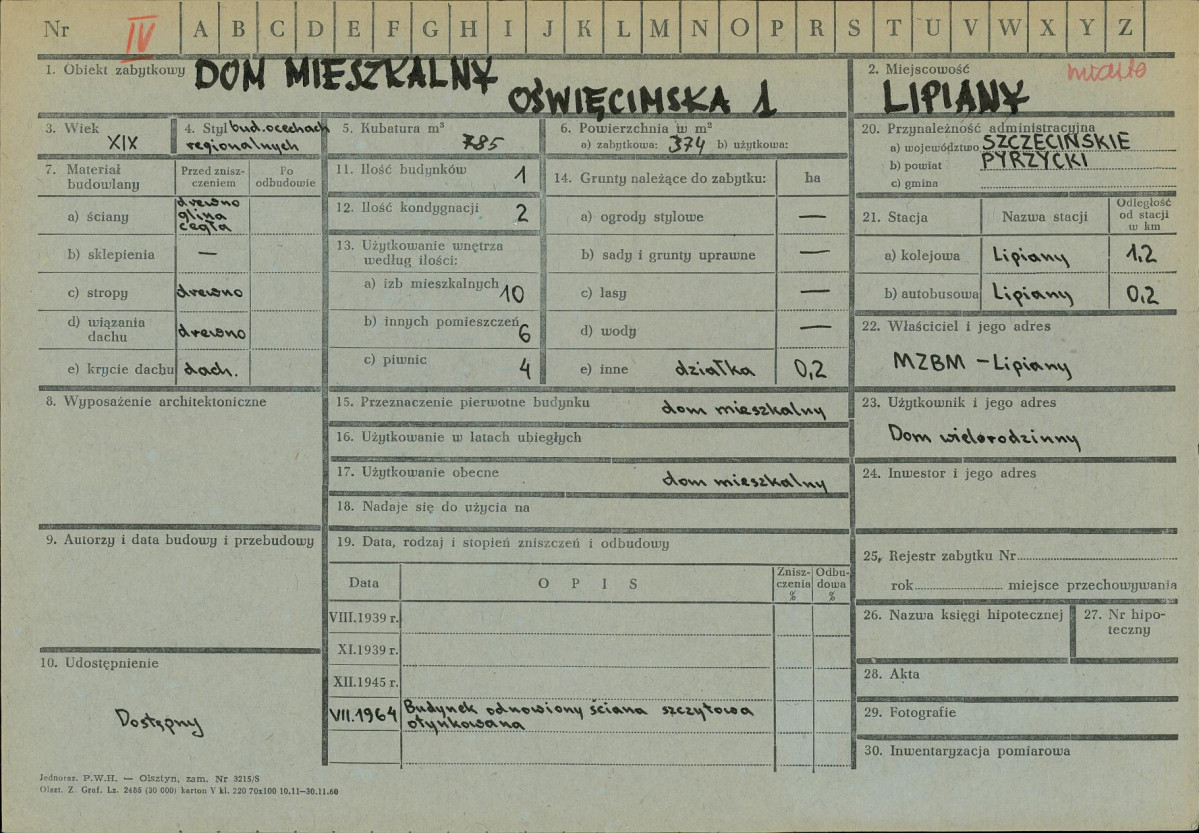 Nr IV A B C D E F G H I J K L M N O P R S T U V W X Y Z
1. Obiekt zabytkowy DOM MIESZKALNY
OŚWIĘCIMSKA 1
2. Miejscowość miasto
LIPIANY
3. Wiek
XIX
4. Styl bud. o cechach
regionalnych
5. Kubatura m³
785
6. Powierzchnia w m²
a) zabytkowa: 374 b) użytkowa:
20. Przynależność administracyjna
a) województwo SZCZECIŃSKIE
b) powiat PYRZYCKI
c) gmina
7. Materiał
budowlany
Przed znisz-
czeniem
Po
odbudowie
a) ściany drewno
glina
cegła
b) sklepienia —
c) stropy drewno
d) wiązania
dachu drewno
e) krycie dachu dach.
11. Ilość budynków 1
12. Ilość kondygnacji 2
13. Użytkowanie wnętrza
według ilości:
a) izb mieszkalnych 10
b) innych pomieszczeń 6
c) piwnic 4
14. Grunty należące do zabytku: ha
a) ogrody stylowe —
b) sady i grunty uprawne —
c) lasy —
d) wody —
e) inne działka 0,2
21. Stacja Nazwa stacji Odległość
od stacji
w km
a) kolejowa Lipiany 1,2
b) autobusowa Lipiany 0,2
22. Właściciel i jego adres
MZBM – Lipiany
8. Wyposażenie architektoniczne
15. Przeznaczenie pierwotne budynku dom mieszkalny
16. Użytkowanie w latach ubiegłych
17. Użytkowanie obecne dom mieszkalny
18. Nadaje się do użycia na
23. Użytkownik i jego adres
Dom wielorodzinny
24. Inwestor i jego adres
9. Autorzy i data budowy i przebudowy
19. Data, rodzaj i stopień zniszczeń i odbudowy
Data O P I S Znisz-
czenia
% Odbu-
dowa
%
VIII.1939 r.
XI.1939 r.
XII.1945 r.
VII.1964 Budynek odnowiony ściana szczytowa
otynkowana
25. Rejestr zabytku Nr
rok miejsce przechowywania
26. Nazwa księgi hipotecznej
27. Nr hipo-
teczny
28. Akta
29. Fotografie
30. Inwentaryzacja pomiarowa
10. Udostępnienie
Dostępny
Jednoraz. P.W.H. — Olsztyn, zam. Nr 3215/S
Olszt. Z. Graf. Lz. 2485 (30 000) karton V kl. 220 70x100 10.11—30.11.60